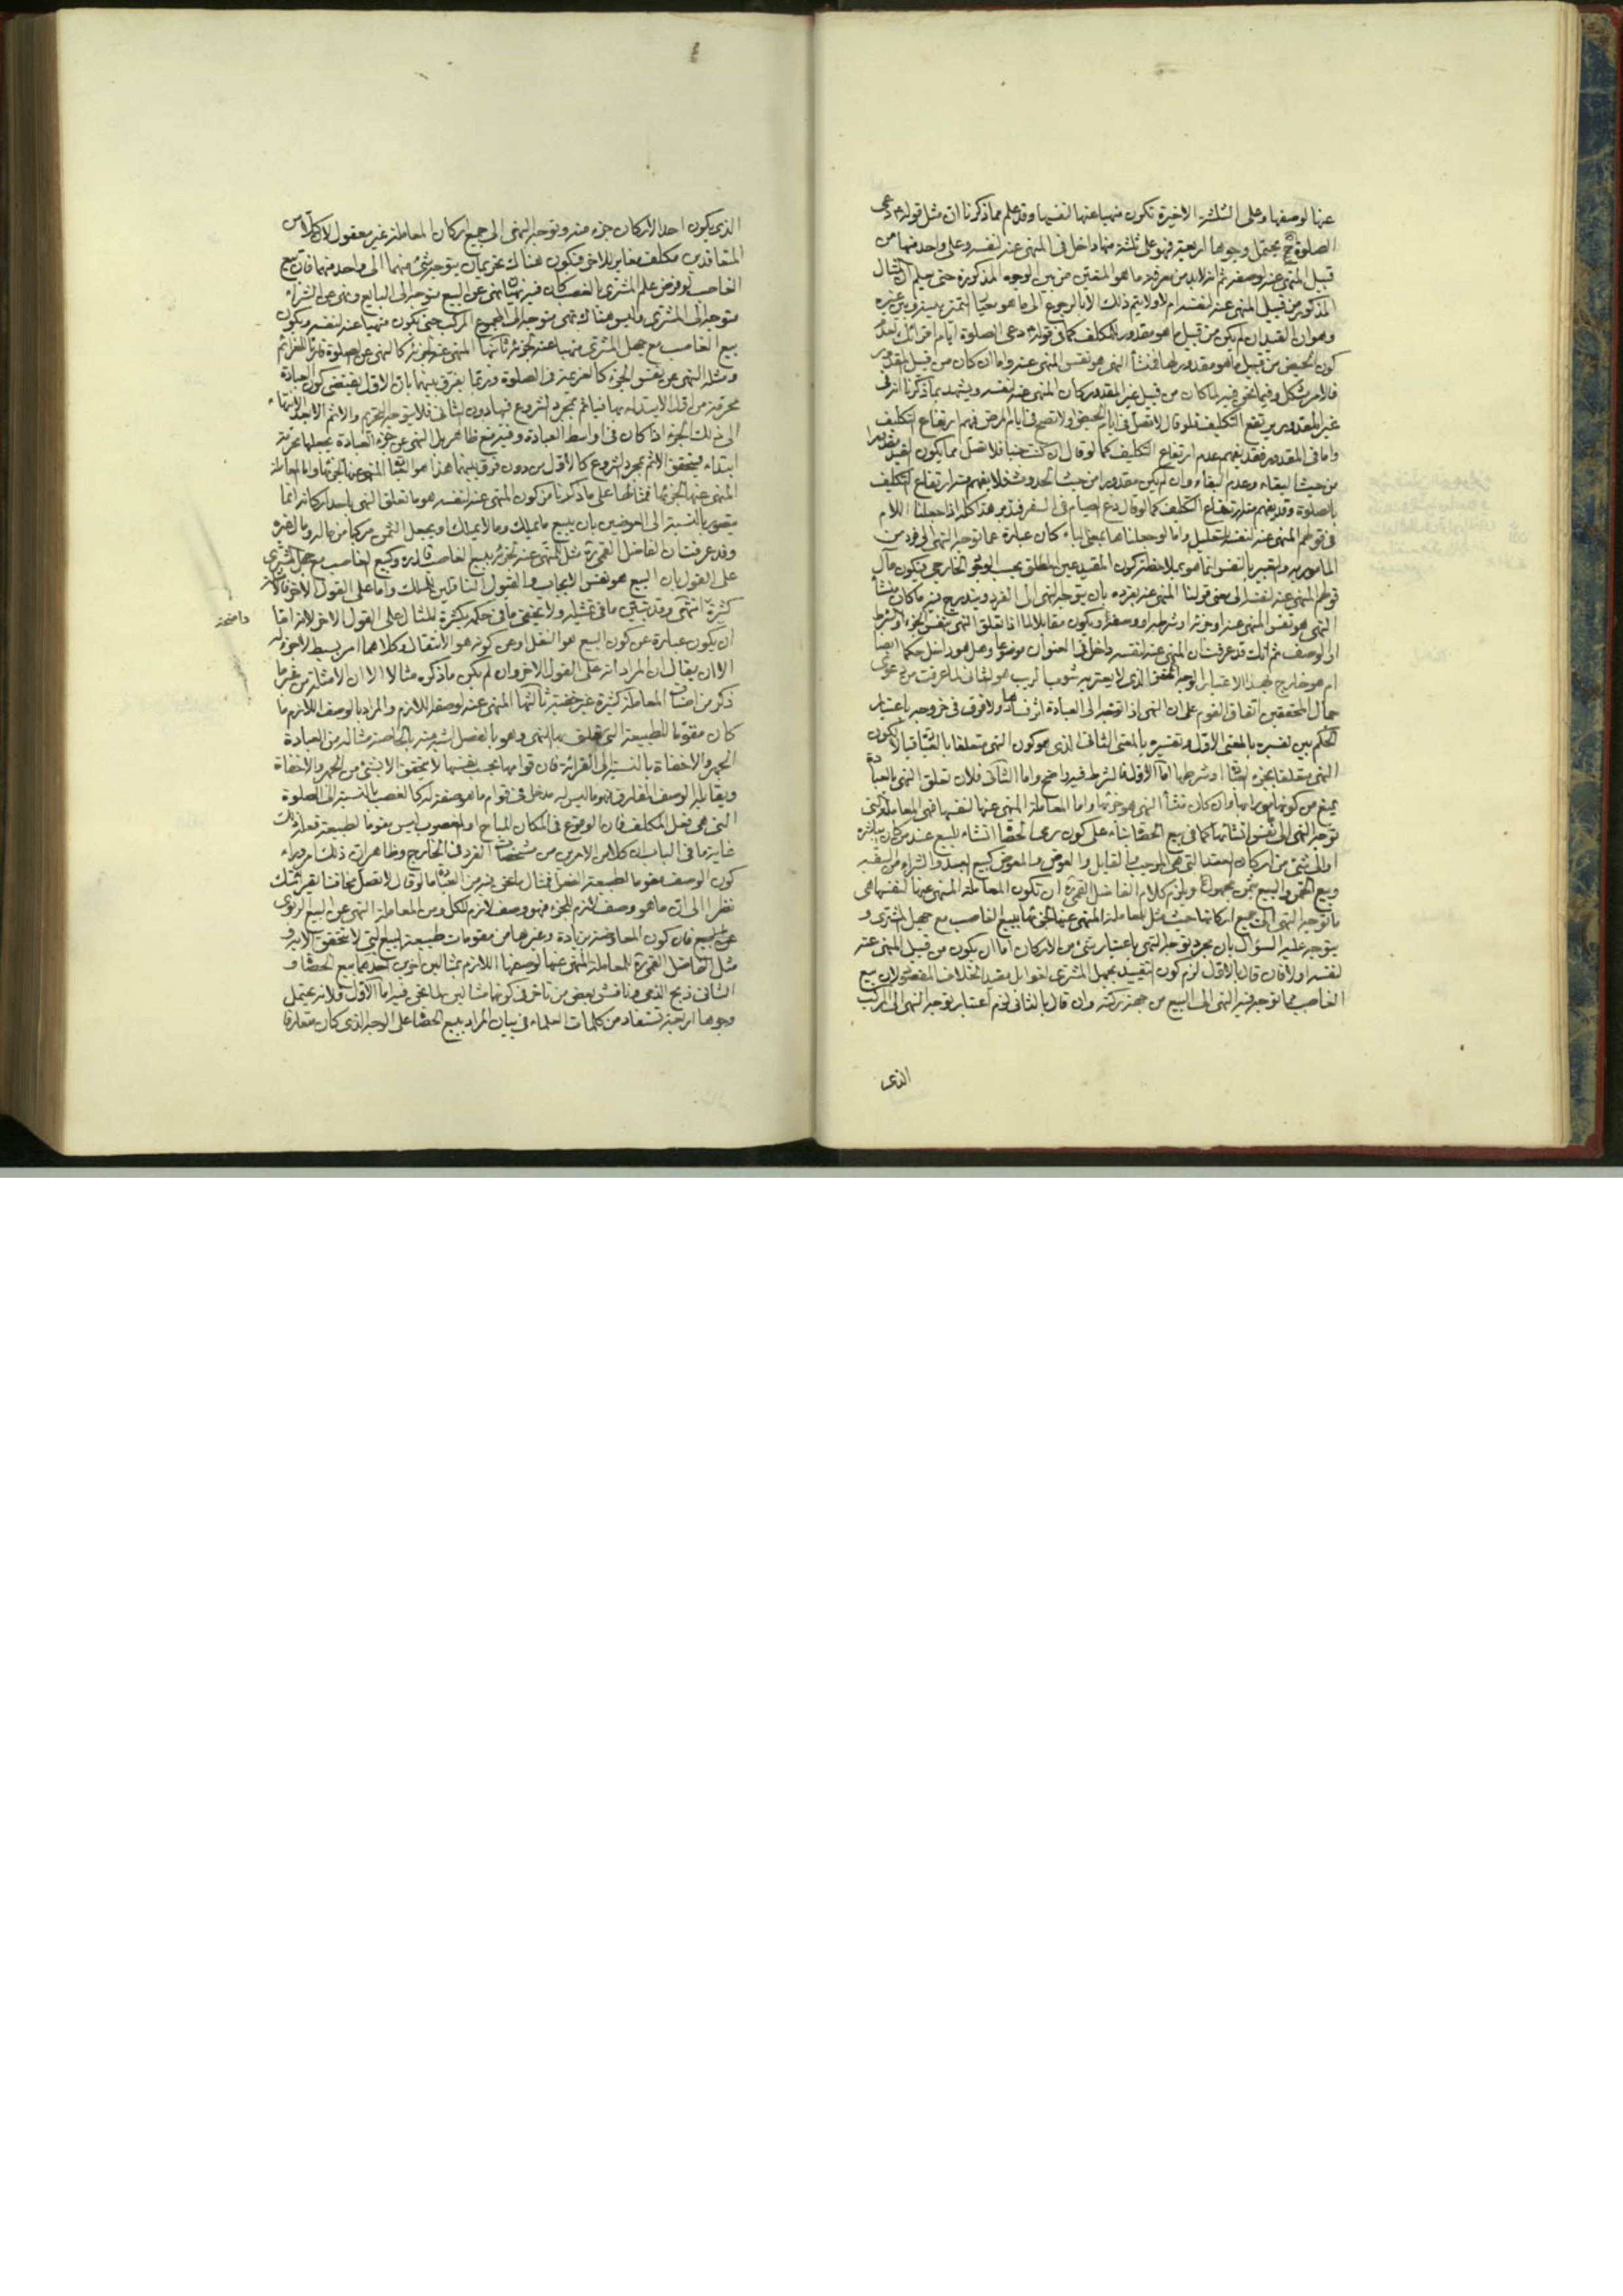 عنها لوصفها وعلى الثلثة الاخيرة تكون منهيا عنها لنفسها وقد علم مما ذكرنا ان مثل قوله دعى
الصلوة يحتمل وجوها اربعة فهو على ثلثة منها داخل فى المنهى عنه لنفسه وعلى واحد منها من
قبيل المنهى عنه لوصفه ثم انه لابد من معرفة ما هو المتعين من بين الوجوه المذكورة حتى يعلم ان المثال
المذكور من قبيل المنهى عنه لنفسه ام لا ولا يتم ذلك الا بالرجوع الى ما هو معيار التمييز بينه وبين غيره
وهو ان القيد ان لم يكن من قبيل ما هو مقدور للمكلف كما فى قوله دعى الصلوة ايام اقرائك لعدم
كون الحيض من قبيل ما هو مقدور لها فمنشأ النهى هو نفس المنهى عنه واما ان كان من قبيل المقدور
فالامر مشكل وفيما نحن فيه لما كان من قبيل غير المقدور كان المنهى عنه لنفسه ويشهد بما ذكرنا انه فى
غير المقدور يرتفع التكليف فلو قال لا تصل فى ايام الحيض او لا تصم فى ايام المرض فهم ارتفاع التكليف
واما فى المقدور فقد يفهم عدم ارتفاع التكليف كما لو قال ان كنت جنبا فلا تصل مما يكون القيد مقدورا
من حيث البقاء وعدم البقاء وان لم يكن مقدورا من حيث الحدوث فلا يفهم منه ارتفاع التكليف
بالصلوة وقد يفهم منه ارتفاع التكليف كما لو قال دع الصيام فى السفر فتدبر هذا كله اذا جعلنا اللام
فى قولهم المنهى عنه لنفسه للتعليل واما لو جعلناها بمعنى الباء كان عبارة عما توجه النهى الى فرد من
المامور به والتعبير بالنفس انما هو بملاحظة كون المقيد عين المطلق بحسب الوجود الخارجى فيكون مآل
قولهم المنهى عنه لنفسه الى معنى قولنا المنهى عنه بفرده بان يتوجه النهى الى الفرد ويندرج فيه ما كان منشأ
النهى هو نفس المنهى عنه او جزئه او شرطه او وصفه ويكون مقابلا لما اذا تعلق النهى بنفس الجزء او الشرط
او الوصف ثم انك قد عرفت ان المنهى عنه لنفسه داخل فى العنوان موضوعا وهل هو داخل حكما ايضا
ام هو خارج بهذا الاعتبار الوجه المحقق الذى لا يعتريه شوب الريب هو الثانى لما عرفت من دعوى
جمال المحققين اتفاق القوم على ان النهى اذا توجه الى العبادة اثر فسادها ولا فرق فى خروجه باعتبار
الحكم بين تفسيره بالمعنى الاول وتفسيره بالمعنى الثانى الذى هو كون النهى متعلقا بالعبادة قبالا لكون
النهى متعلقا بجزء العبادة او شرطها اما الاول فالشرط فيه واضح واما الثانى فلان تعلق النهى بالعبادة
يمنع من كونها مامورا بها وان كان منشأ النهى هو جزئها واما المعاملة المنهى عنها لنفسها فهى المعاملة التى
توجه النهى الى نفس انشائها كما فى بيع الحصاة بناء على كون رمى الحصاة انشاء للبيع عند من كان يباشره
او الى شئ من اركان العقد التى هى الموجب والقابل والعوض والمعوض كبيع العبد والشراء من السفيه
وبيع الخمر والبيع بثمن مجهول ويلزم كلام الفاضل القمى ره ان تكون المعاملة المنهى عنها لنفسها هى
ما توجه النهى الى جميع اركانها حيث مثل للمعاملة المنهى عنها لجزئها ببيع الغاصب مع جهل المشترى و
يتوجه عليه السؤال بان مجرد توجه النهى باعتبار شئ من الاركان اما ان يكون من قبيل المنهى عنه
لنفسه او لا فان قال بالاول لزم كون التقييد بجهل المشترى لغوا بل مفيدا لخلاف المقصود لان بيع
الغاصب مما توجه فيه النهى الى البيع من جهة ركنه وان قال بالثانى لزم اعتبار توجه النهى الى المركب
الذى
الذى يكون احد الاركان جزء منه وتوجه النهى الى جميع اركان المعاملة غير معقول لان كلا من
المتعاقدين مكلف مغاير للاخر فيكون هناك تحريمان يتوجه شئ منهما الى واحد منهما فان بيع
الغاصب لو فرض علم المشترى بالغصب كان فيه نهيان نهى عن البيع متوجه الى البايع ونهى عن الشراء
متوجه الى المشترى وليس هناك نهى متوجه الى المجموع المركب حتى يكون منهيا عنه لنفسه ويكون
بيع الغاصب مع جهل المشترى منهيا عنه لجزئه ثانيها المنهى عنه لجزئه كالنهى عن الصلوة قارئا للعزائم
ومثله النهى عن نفس الجزء كالعزيمة فى الصلوة وربما يفرق بينهما بان الاول يقتضى كون العبادة
محرمة من اول الابتداء بها فياثم بمجرد الشروع فيها دون الثانى فلا يتوجه التحريم والاثم الا بعد الانتهاء
الى ذلك الجزء اذا كان فى اواسط العبادة وفيه منع ظاهر بل النهى عن جزء العبادة يجعلها محرمة
ابتداء فيتحقق الاثم بمجرد الشروع كالاول من دون فرق بينهما هذا هو العبادة المنهى عنها لجزئها واما المعاملة
المنهى عنها لجزئها فمثالها على ما ذكرنا من كون المنهى عنه لنفسه هو ما تعلق النهى باحد اركانه انما
يتصور بالنسبة الى العوضين بان يبيع ما يملك وما لا يملك او يجعل الثمن مركبا من ماله ومال غيره
وقد عرفت ان الفاضل القمى ره مثل للمنهى عنه لجزئه ببيع الغاصب قال ره وكبيع الغاصب مع جهل المشترى
على القول بان البيع هو نفس الايجاب والقبول الناقلين للملك واما على القول الآخر فالامثلة
كثيرة انتهى وقد تبين ما فى تمثيله ولا يخفى ما فى حكمه بكثرة المثال على القول الآخر لانه اما
واضحة
ان يكون عبارة عن كون البيع هو النقل او عن كونه هو الانتقال وكلاهما امر بسيط لا جزء له
الا ان يقال ان المراد انه على القول الآخر وان لم يكن ما ذكره مثالا الا ان الامثلة من غير ما
ذكر من اصناف المعاملة كثيرة غير خفية ثالثها المنهى عنه لوصفه اللازم والمراد بالوصف اللازم ما
كان مقوما للطبيعة التى تعلق بها النهى وهو بالفصل اشبه منه بالخاصة مثاله من العبادة
الجهر والاخفاة بالنسبة الى القرائة فان قوامها بحسب نفسها لا يتحقق الا بشئ من الجهر والاخفاة
ويقابله الوصف المفارق فهو ما ليس له مدخل فى قوام ما هو صفة له كالغصب بالنسبة الى الصلوة
التى هى فعل المكلف فان الوقوع فى المكان المباح او المغصوب ليس مقوما لطبيعة فعله ذلك
غاية ما فى الباب ان كلا من الامرين من مشخصات الفرد فى الخارج وظاهر ان ذلك امر وراء
كون الوصف مقوما لطبيعة الفعل فمثال ما نحن فيه من العبادة ما لو قال لا تصل مخافتا بقرائتك
نظرا الى ان ما هو وصف لازم للجزء فهو وصف لازم للكل ومن المعاملة النهى عن البيع الربوى
عن البيع فان كون المعاوضة بزيادة وغيرها من مقومات طبيعة البيع التى لا تتحقق الا به و
مثل الفاضل القمى ره للمعاملة المنهى عنها لوصفها اللازم بمثالين اخرين احدهما بيع الحصاة و
الثانى ذبح الذمى وناقش بعض من تاخر فى كونهما مثالين لما نحن فيه اما الاول فلانه يحتمل
وجوها اربعة تستفاد من كلمات العلماء فى بيان المراد ببيع الحصاة على الوجه الذى كان متعارفا